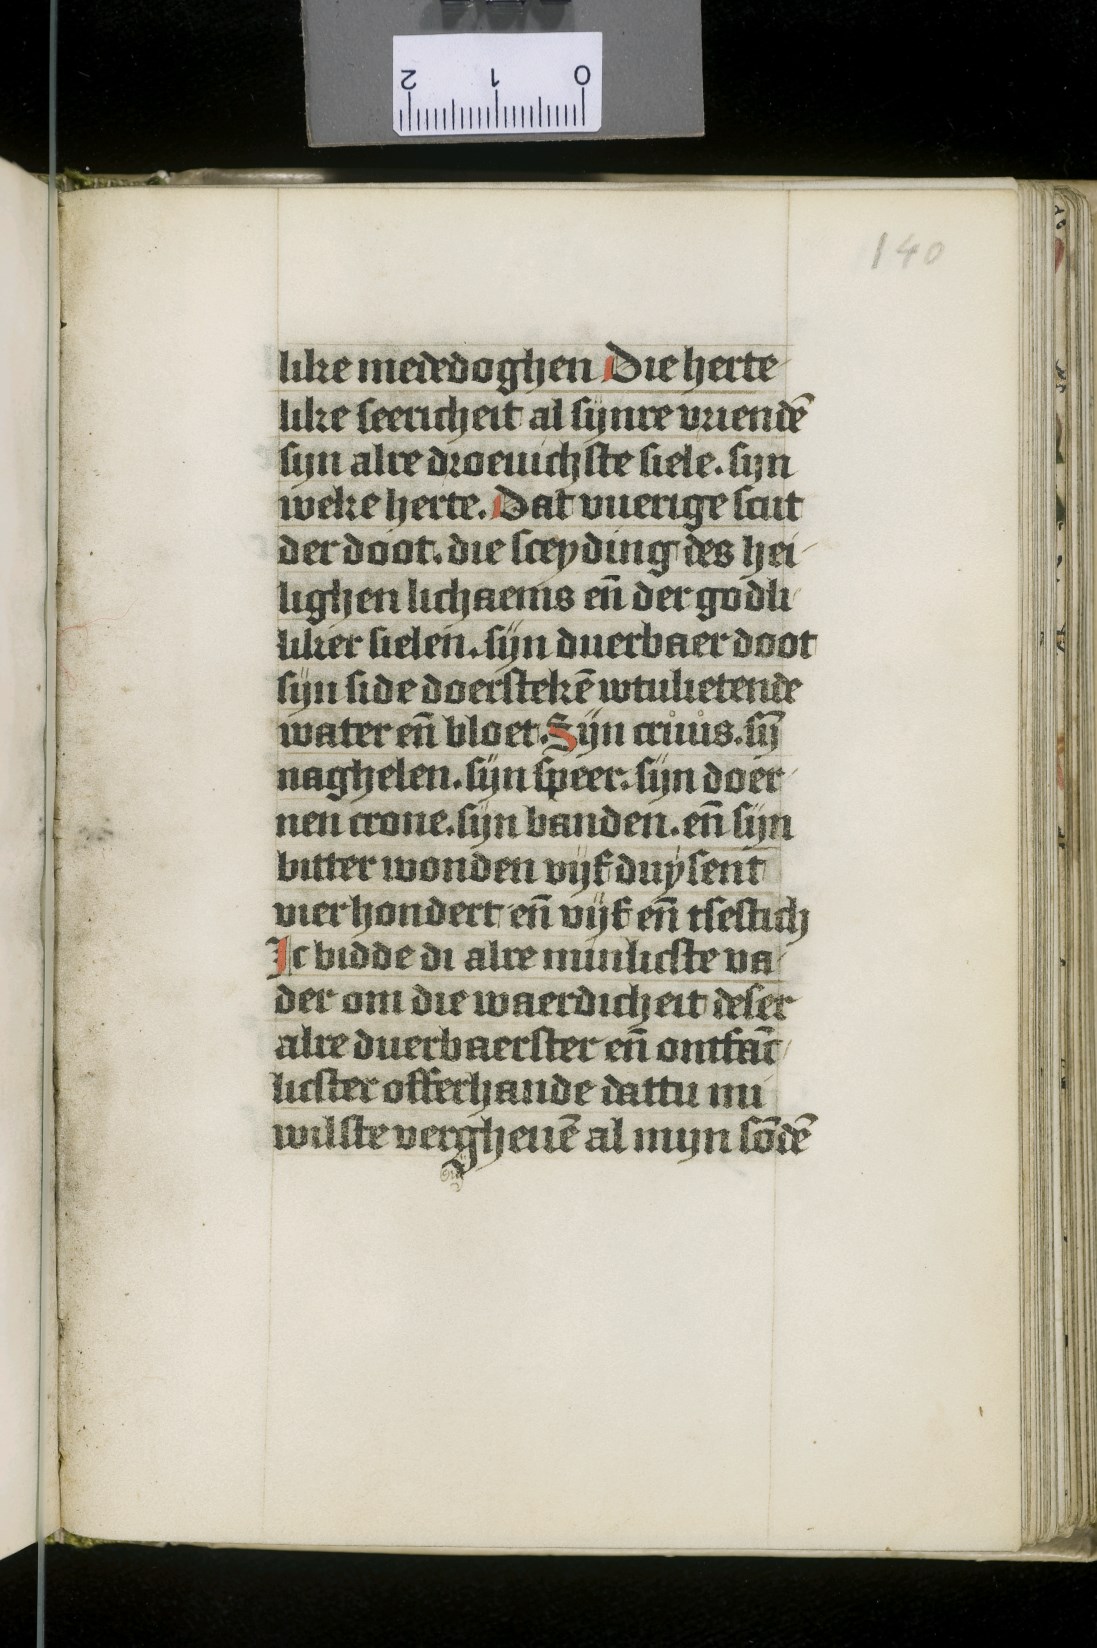 140
like mededoghen Die herte
like seericheit al sijnre vriendē
sijn alre droeuichste siele. sijn
weke herte. Dat vuerige scut
der doot. die sceyding des hei
lighen lichaems en̄ der godli
liker sielen. sijn duerbaer doot
sijn side doerstekē wtulietende
water en̄ bloet. Sijn cruus. sij̄
naghelen. sijn speer. sijn doer
nen crone. sijn banden. en̄ sijn
bitter wonden vijf duysent
vierhondert en̄ vijf en̄ tsestich
Ic bidde di alre minlicste va
der om die waerdicheit deser
alre duerbaerster en̄ ontfāc
licster offerhande dattu mi
wilste vergheuē al mijn sōdē
0 1 2